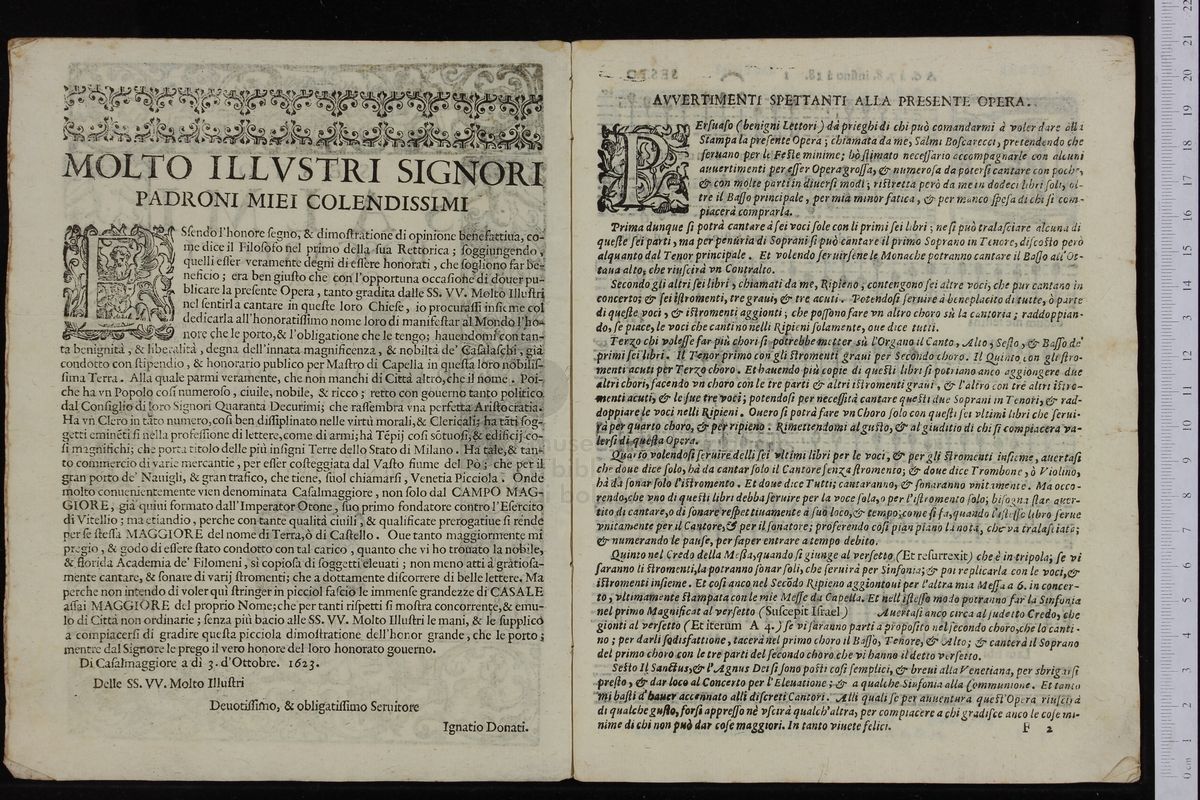 MOLTO ILLVSTRI SIGNORI
PADRONI MIEI COLENDISSIMI
ESſendo l'honore ſegno, & dimoſtratione di opinione benefattiua, co-
me dice il Filoſofo nel primo della ſua Rettorica; ſoggiungendo,
quelli eſſer veramente degni di eſſere honorati, che ſogliono far be-
neficio; era ben giuſto che con l'opportuna occaſione di douer pu-
blicare la preſente Opera, tanto gradita dalle SS. VV. Molto Illuſtri
nel ſentirla cantare in queſte loro Chieſe, io procuraſſi inſieme col
dedicarla all'honoratiſſimo nome loro di manifeſtar al Mondo l'ho-
nore che le porto, & l'obligatione che le tengo; hauendomi con tan-
ta benignità, & liberalità, degna dell'innata magnificenza, & nobiltà de' Caſalaſchi, già
condotto con ſtipendio, & honorario publico per Maſtro di Capella in queſta loro nobiliſ-
ſima Terra. Alla quale parmi veramente, che non manchi di Città altro, che il nome. Poi-
che ha vn Popolo coſi numeroſo, ciuile, nobile, & ricco; retto con gouerno tanto politico
dal Conſiglio di loro Signori Quaranta Decurimi; che raſſembra vna perfetta Ariſtocratia.
Ha vn Clero in tãto numero, coſi ben diſſiplinato nelle virtù morali, & Clericali; ha tãti ſog-
getti eminẽti ſi nella profeſſione di lettere, come di armi; hà Tẽpij coſi sõtuoſi, & edificij co-
ſi magnifichi; che porta titolo delle più inſigni Terre dello Stato di Milano. Ha tale, & tan-
to commercio di varie mercantie, per eſſer coſteggiata dal Vaſto fiume del Pò; che per il
gran porto de' Nauigli, & gran trafico, che tiene, ſuol chiamarſi, Venetia Picciola. Onde
molto conuenientemente vien denominata Caſalmaggiore, non ſolo dal CAMPO MAG-
GIORE, già quiui formato dall'Imperator Otone, ſuo primo fondatore contro l'Eſercito
di Vitellio; ma etiandio, perche con tante qualità ciuili, & qualificate prerogatiue ſi rende
per ſe ſteſſa MAGGIORE del nome di Terra, ò di Caſtello. Oue tanto maggiormente mi
pregio, & godo di eſſere ſtato condotto con tal carico, quanto che vi ho trouato la nobile,
& florida Academia de' Filomeni, si copioſa di ſoggetti eleuati; non meno atti à gratioſa-
mente cantare, & ſonare di varij ſtromenti; che a dottamente diſcorrere di belle lettere. Ma
perche non intendo di voler quì ſtringer in picciol faſcio le immenſe grandezze di CASALE
aſſai MAGGIORE del proprio Nome; che per tanti riſpetti ſi moſtra concorrente, & emu-
lo di Città non ordinarie; ſenza più bacio alle SS. VV. Molto Illuſtri le mani, & le ſupplico
a compiacerſi di gradire queſta picciola dimoſtratione dell'honor grande, che le porto;
mentre dal Signore le prego il vero honore del loro honorato gouerno.
Di Caſalmaggiore a dì 3. d'Ottobre. 1623.
Delle SS. VV. Molto Illuſtri
Deuotiſſimo, & obligatiſſimo Seruitore
Ignatio Donati.
AVVERTIMENTI SPETTANTI ALLA PRESENTE OPERA.
PErſuaſo (benigni Lettori) da prieghi di chi può comandarmi à voler dare alla
Stampa la preſente Opera; chiamata da me, Salmi Boſcarecci, pretendendo che
ſeruano per le Feſte minime; hò ſtimato neceſſario accompagnarle con alcuni
auuertimenti per eſſer Opera groſſa, & numeroſa da poterſi cantare con poche,
& con molte parti in diuerſi modi; riſtretta però da me in dodeci libri ſoli, ol-
tre il Baſſo principale, per mia minor fatica, & per manco ſpeſa di chi ſi com-
piacerà comprarla.
Prima dunque ſi potrà cantare à ſei voci ſole con li primi ſei libri; ne ſi può tralaſciare alcuna di
queſte ſei parti, ma per penuria di Soprani ſi può cantare il primo Soprano in Tenore, diſcoſto però
alquanto dal Tenor principale. Et volendo ſeruirſene le Monache potranno cantare il Baſſo all'Ot-
taua alto, che riuſcirà vn Contralto.
Secondo gli altri ſei libri, chiamati da me, Ripieno, contengono ſei altre voci, che pur cantano in
concerto; & ſei iſtromenti, tre graui, & tre acuti. Potendoſi ſeruire à beneplacito di tutte, ò parte
di queſte voci, & iſtromenti aggionti; che poſſono fare vn altro choro sù la cantoria; raddoppian-
do, ſe piace, le voci che cantino nelli Ripieni ſolamente, oue dice tutti.
Terzo chi voleſſe far più chori ſi potrebbe metter sù l'Organo il Canto, Alto, Seſto, & Baſſo de'
primi ſei libri. Il Tenor primo con gli ſtromenti graui per Secondo choro. Il Quinto con gli ſtro-
menti acuti per Terzo choro. Et hauendo più copie di queſti libri ſi potriano anco aggiongere due
altri chori, facendo vn choro con le tre parti & altri iſtromenti graui, & l'altro con tre altri iſtro-
menti acuti, & le ſue tre voci; potendoſi per neceſſità cantare queſti due Soprani in Tenori, & rad-
doppiare le voci nelli Ripieni. Ouero ſi potrà fare vn Choro ſolo con queſti ſei vltimi libri che ſerui-
rà per quarto choro, & per ripieno: Rimettendomi al guſto, & al giuditio di chi ſi compiacerà va-
lerſi di queſta Opera.
Quarto volendoſi ſeruire delli ſei vltimi libri per le voci, & per gli ſtromenti inſieme, auertaſi
che doue dice ſolo, hà da cantar ſolo il Cantore ſenza ſtromento; & doue dice Trombone, ò Violino,
hà da ſonar ſolo l'iſtromento. Et doue dice Tutti; cantaranno, & ſonaranno vnitamente. Ma occo-
rendo, che vno di queſti libri debba ſeruire per la voce ſola, o per l'iſtromento ſolo; biſogna ſtar auer-
tito di cantare, o di ſonare reſpettiuamente à ſuò loco, & tempo; come ſi fa, quando l'iſteſſo libro ſerue
vnitamente per il Cantore, & per il ſonatore; proferendo coſi pian piano la nota, che va tralaſciata;
& numerando le pauſe, per ſaper entrare a tempo debito.
Quinto nel Credo della Meſſa, quando ſi giunge al verſetto (Et reſurrexit) che è in tripola; ſe vi
ſaranno li ſtromenti, la potranno ſonar ſoli, che ſeruirà per Sinfonia; & poi replicarla con le voci, &
iſtromenti inſieme. Et coſi anco nel Secõdo Ripieno aggiontoui per l'altra mia Meſſa a 6. in concer-
to, vltimamente ſtampata con le mie Meſſe da Capella. Et nell'iſteſſo modo potranno far la Sinfonia
nel primo Magnificat al verſetto (Suſcepit Iſrael) Auertaſi anco circa al ſudetto Credo, che
gionti al verſetto (Et iterum A 4.) ſe vi ſaranno parti a propoſito nel ſecondo choro, che lo canti-
no; per darli ſodisfattione, tacerà nel primo choro il Baſſo, Tenore, & Alto; & canterà il Soprano
del primo choro con le tre parti del ſecondo choro che vi hanno il detto verſetto.
Seſto Il Sanctus, & l'Agnus Dei ſi ſono poſti coſi ſemplici, & breui alla Venetiana, per sbrigarſi
preſto, & dar loco al Concerto per l'Eleuatione; & a qualche Sinfonia alla Communione. Et tanto
mi baſti d'hauer accennato alli diſcreti Cantori. Alli quali ſe per auuentura queſt'Opera riuſcirà
di qualche guſto, forſi appreſſo nè vſcirà qualch'altra, per compiacere a chi gradiſce anco le coſe mi-
nime di chi non può dar coſe maggiori. In tanto viuete felici.
F 2